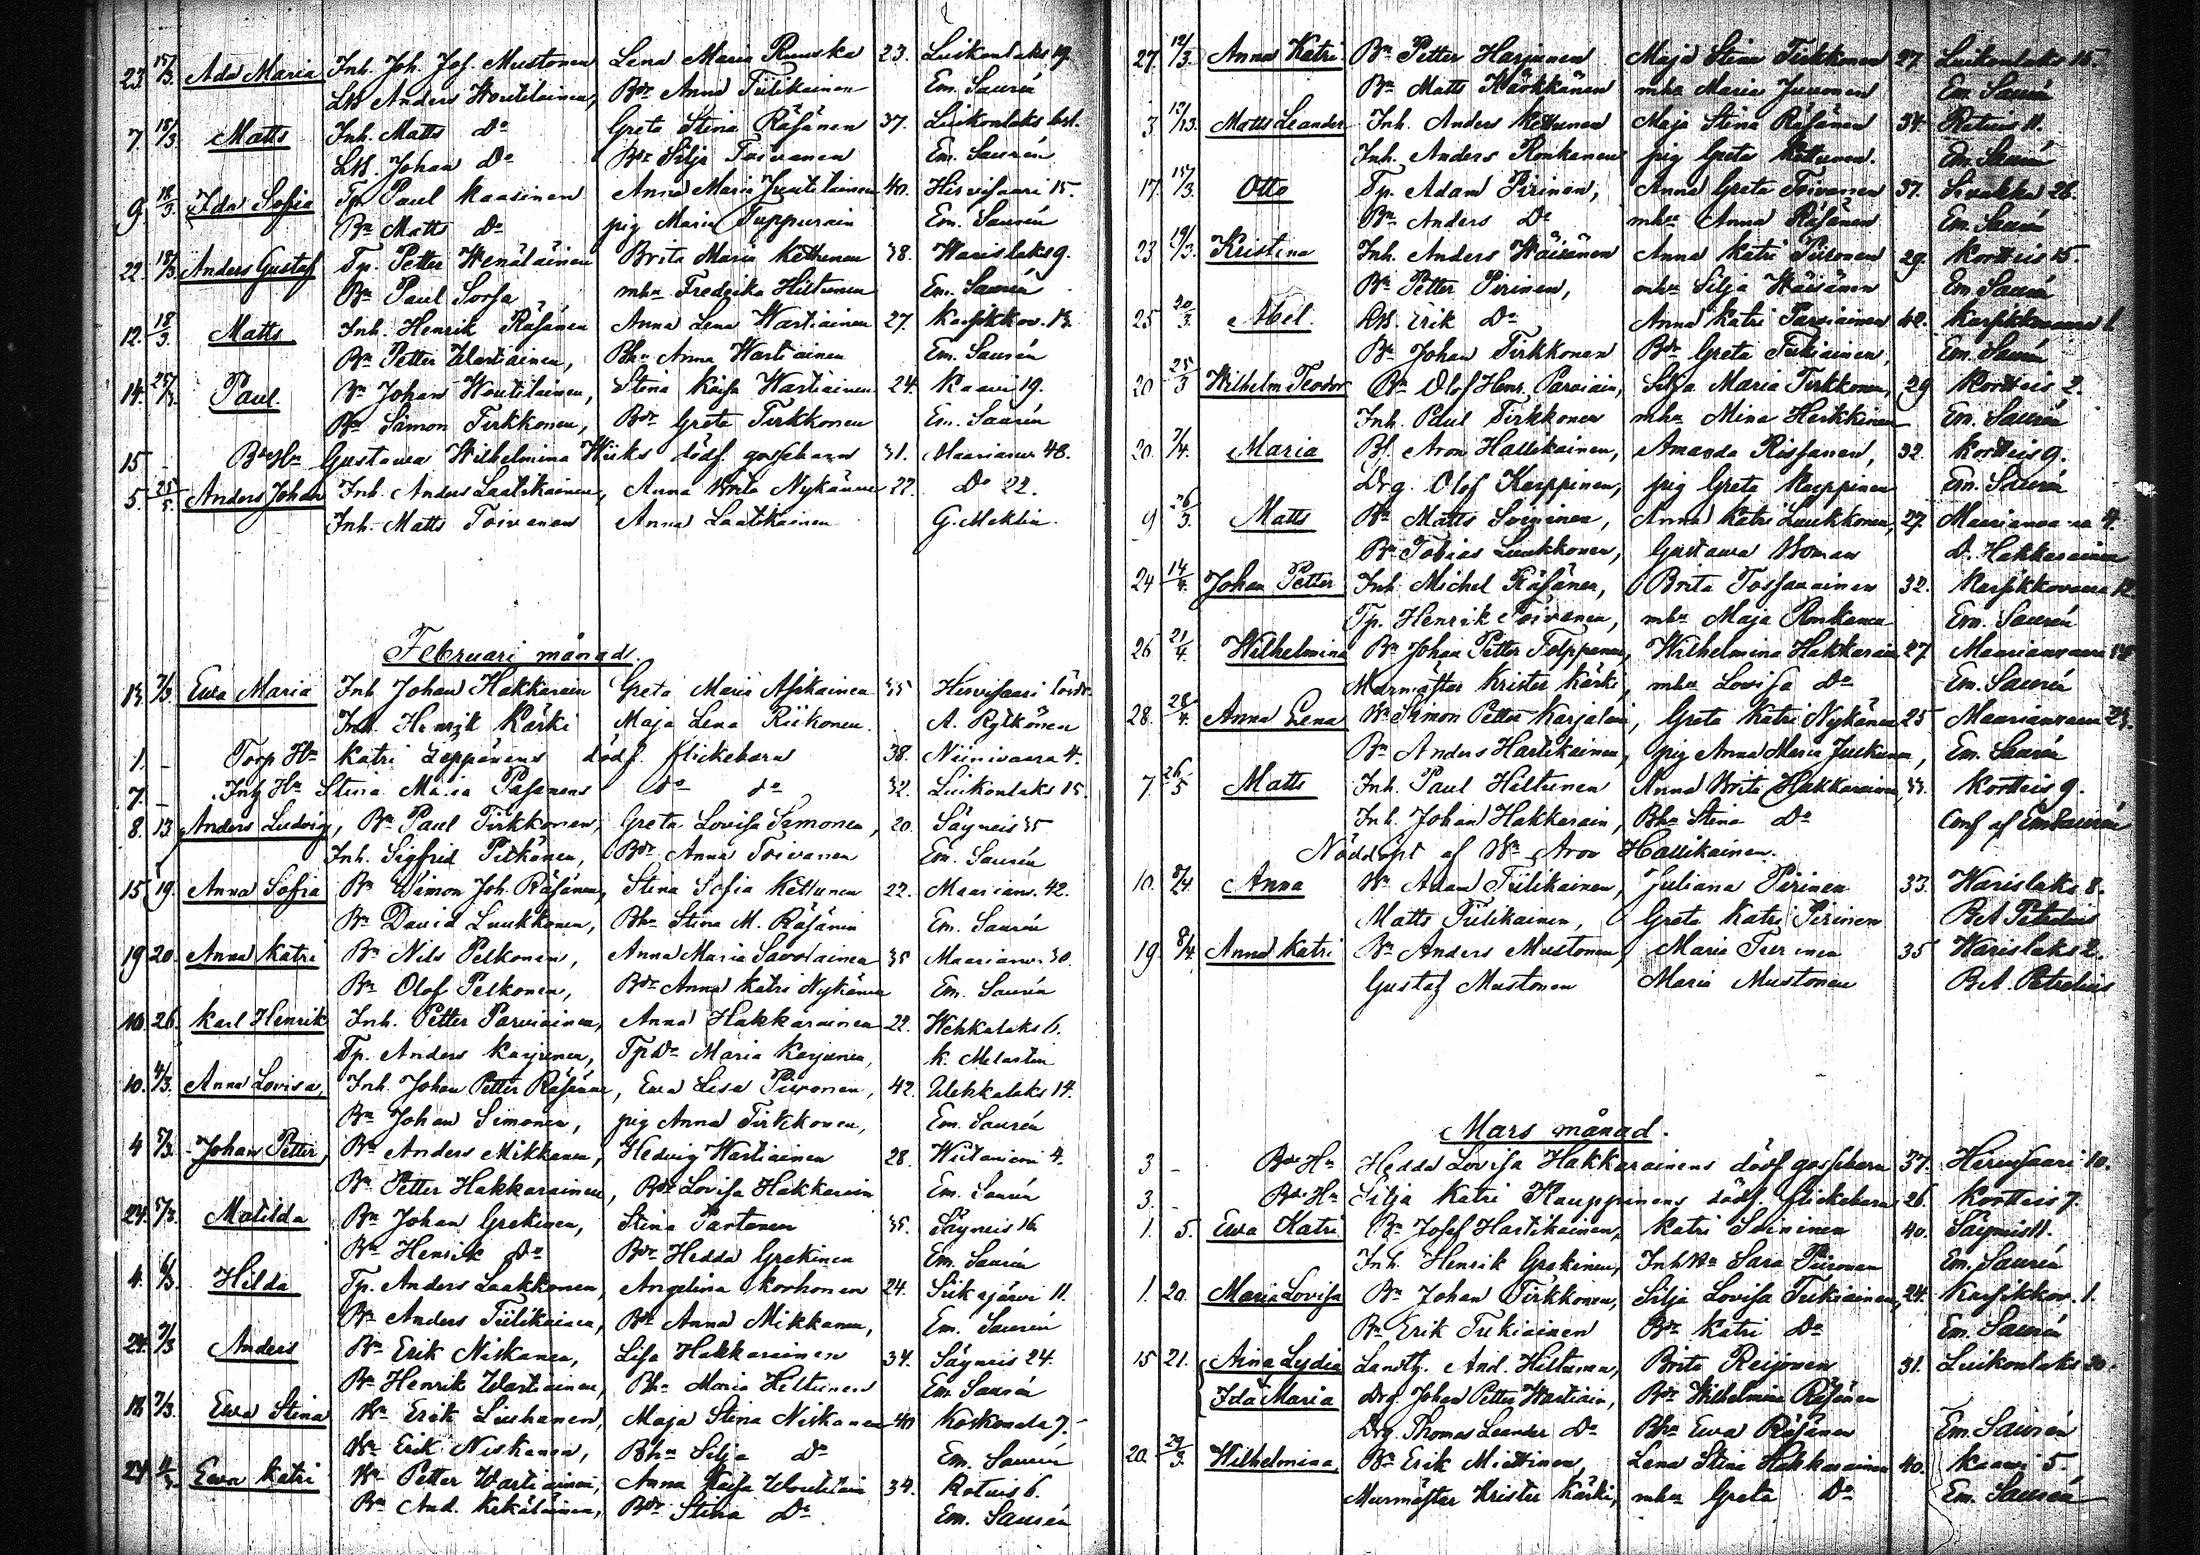 23. 15/3. Ada Maria Inh. Joh. Jos. Mustonen Lena Maria Ruuska 23. Luikonlaks 19.
Anders Woutilainen, Bdr Anna Tiilikainen Em. Saurén
7. 15/3 Matts Inh. Matts Do Greta Stina Räsänen 37. Luikonlaks
Johan Do Bdr Silja Toivanen Em. Saurén
9. 18/3. Ida Sofia Tp. Paul Kaasinen Anna Maria Juutilainen 40. Hirvisaari 15.
Bn Matts Do pig Maria Tuppurain Em. Saurén
22. 18/3 Anders Gustaf Tp. Petter Wenäläinen Brita Maria Kettunen 38. Warislaks 9.
Bn Paul Sorsa mhu Fredrika Hiltunen Em. Saurén
12. 18/3 Matts Inh. Henrik Räsänen Anna Lena Wartiainen 27. Karsikkov. 13.
Bn Petter Wartiainen, Bhu Anna Wartiainen Em. Saurén
14. Paul Bn Johan Woutilainen, Stina Kaisa Wartiainen 24. Kaavi 19.
Bn Simon Tirkkonen, Bdr Greta Tirkkonen Em. Saurén
15 – Gustava Wilhelmina Wiiks dödf. gossebarn 31. Maarianv. 48.
5. 25/5 Anders Johan Inh. Anders Laatikainen, Anna Brita Nykänen 22. Do 22.
Inh. Matts Toivanen Anna Laatikainen G. Meklin.
Februari månad.
13. 7/3. Ewa Maria Inh. Johan Hakkarain Greta Maria Asikainen 35 Hirvisaari
Inh. Henrik Kärki Maja Lena Riikonen. A. Rytkönen
1. – Torp Hu Katri Leppänens dödf. flickebarn 38. Niinivaara 4.
7. – Inh Hu Stina Maria Pasanens do do 32. Luikonlaks 15.
8. 13 Anders Ludvig, Bn Paul Tirkkonen, Greta Lovisa Simonen, 20. Säyneis 35
Inh. Sigfrid Pitkänen, Bdr Anna Toivanen Em. Saurén
15 19. Anna Sofia Bn Simon Joh. Räsänen, Stina Sofia Kettunen 22. Maarianv. 42.
Bn David Luukkonen, Bhu Stina M. Räsänen Em. Saurén
19 20. Anna Katri Bn Nils Pelkonen, Anna Maria Savolainen 35 Maarianv. 30.
Bn Olof Pelkonen, Bdr Anna Katri Nykänen Em. Saurén
10. 26. Karl Henrik Inh. Petter Parviainen, Anna Hakkarainen 22. Wehkalaks 6.
Tp. Anders Karjunen, Tp Maria Karjunen, K. Melartin
10. 4/3. Anna Lovisa, Inh. Johan Petter Räsänen, Ewa Lisa Piironen, 42. Wehkalaks 14.
Bn Johan Simonen, pig Anna Tirkkonen, Em. Saurén
4 5/3. Johan Petter, Bn Anders Mikkanen, Hedvig Wartiainen 28. 4.
Bn Petter Hakkarainen, Bdr Lovisa Hakkarain Em. Saurén
24. 5/3. Matilda Bn Johan Grekinen, Stina Partanen 35. Säyneis 16
Bn Henrik Do Bdr Hedda Grekinen Em. Saurén
4. 6/3. Hilda Tp. Anders Laakkonen, Angelina Korhonen 24. Siikajärvi 11.
Bn Anders Tiilikainen, Bhr Anna Mikkanen, Em. Saurén
24. 7/3 Anders Bn Erik Niskanen, Lisa Hakkarainen 34. Säyneis 24.
Bn Henrik Wartiainen, Bhu Maria Hiltunen Em. Saurén
18. 7/3. Ewa Stina Bn Erik Liuhanen, Maja Stina Niskanen 40 7.
Bn Erik Niskanen, Bhu Silja Do Em. Saurén
24 Ewa Katri Bn Petter Wartiainen, Anna Kaisa Woutilain 34. Rotuis 6.
Bn And. Kekäläinen, Bdr Stina Do Em. Saurén
27. 12/3. Anna Katri Bn Petter Harjunen Maja Stina Tirkkonen 27. Luikonlaks 15
Bn Matts Härkkänen mhu Maria Juvonen Em. Saurén
3 12/3. Matts Leander Inh. Anders Kettunen Maja Stina Räsänen 34. Rotuis 11.
Inh. Anders Ronkanen pig Greta Kettunen. Em. Saurén
17. 15/3. Otto Tp. Adam Pirinen, Anna Greta Toivanen 37. Sivakka 26.
Bn Anders Do mhu Anna Räsänen Em. Saurén
23 19/3. Kristina Inh. Anders Wäisänen Anna Katri Piironen 29. Kortteis 15.
Bn Petter Pirinen, mhu Silja Wäisänen Em. Saurén
25 20/3. Abel. Erik Do Anna Katri Parviainen 42. Karsikkovaara 1.
Bn Johan Tirkkonen Bdr Greta Tukiainen, Em. Saurén
20 25/3 Wilhelm Teodor Bn Olof Henr. Parviain, Silja Maria Tirkkonen, 29 Kortteis 2.
Inh. Paul Tirkkonen mhu Mina Heikkinen Em. Saurén
20. 7/4. Maria Bf. Aron Hallikainen, Amanda Rissanen, 32. Kortteis 9.
Drg. Olof Kauppinen, pig Greta Kauppinen Em. Saurén
9 26/3. Matts Bn Matts Soininen, Anna Katri Luukkonen, 27. Maarianvaara 4.
Bn Tobias Luukkonen, Gustava Boman D. Hakkarainen
24 14/4. Johan Petter Inh. Michel Räsänen, Brita Tossavainen 32. Karsikkovaara 12
Tp. Henrik Toivanen, mhu Maja Ronkanen Em. Saurén
26 21/4. Wilhelmina Bn Johan Petter Tolppanen, Wilhelmina Hakkarain 27 Maarianvaara
Murmästar Krister Kärki, mhu Lovisa Do Em. Saurén
28. 28/4. Anna Lena Bn Simon Petter Karjalain, Greta Katri Nykänen 25 Maarianvaara 23.
Bn Anders Hartikainen, pig Anna Maria Juskanen, Em. Saurén
7. 26/5 Matts Inh. Paul Hiltunen Anna Brita Hakkarainen, 33. Kortteis 9.
Inh. Johan Hakkarain, Bhu Stina Do Conf af Em Saurén
Nöddöpt af Bn Aron Hallikainen.
10. 8/4 Anna Bn Adam Tiilikainen, Juliana Pirinen 33. Warislaks 8.
Matts Tiilikainen, Greta Katri Pirinen B.A. Petrelius
19. 8/4 Anna Katri Bn Anders Mustonen, Maria Turunen 35 Warislaks 2.
Gustaf Mustonen Maria Mustonen B.A. Petrelius
Mars månad.
3 – Bde Hu Hedda Lovisa Hakkarainens dödf gossebarn 37. Hirvisaari 10.
3. – Bde Hu Silja Katri Kauppinens dödf. flickebarn 26. Kortteis 7.
1. 5. Ewa Katri Bn Josef Hartikainen, Katri Soininen 40. Säyneis 11.
Inh. Henrik Grekinen, Inh Hu Sara Piironen Em. Saurén
1. 20. Maria Lovisa Bn Johan Tirkkonen, Silja Lovisa Tukiainen, 24. Karsikkov. 1.
Bn Erik Tukiainen Bdr Katri Do Em. Saurén
15 21. Aina Lydia Landth. And. Hiltunen, Brita Reijonen 31. Luikonlaks 20.
Ida Maria Drg. Johan Petter Wartiain, Bdr Wilhelmina Räsänen
Drg. Thomas Leander Do Bhu Ewa Räsänen Em. Saurén
20. 29/3. Wilhelmina Bn Erik Miettinen, Lena Stina Hakkarainen 40. Kaavi 5.
Murmästar Krister Kärki, mhu Greta Do Em. Saurén